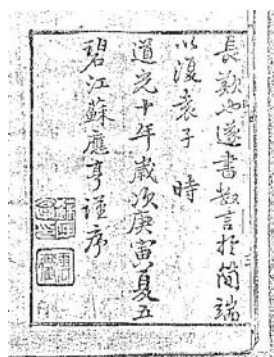 長歎也遂書數言於簡端
以復袁子時
道光十年歲次庚寅夏五
碧江蘇應亨謹序